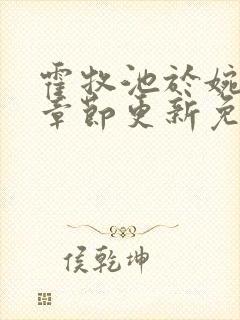 霍牧池於婉
章節更新免
侯乾坤